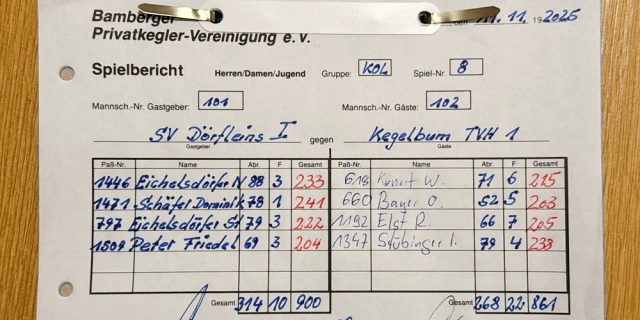 Bamberger
Privatkegler-Vereinigung e. v.
, den 11.11. 19 2025
Spielbericht Herren/Damen/Jugend Gruppe: KOL Spiel-Nr. 8
Mannsch.-Nr. Gastgeber: 101 Mannsch.-Nr. Gäste: 102
SV Dörfleins I gegen Kegelbum TVH 1
Gastgeber Gäste
Paß-Nr. Name Abr. F Gesamt Paß-Nr. Name Abr. F Gesamt
1446 Eichelsdörfer N 88 3 233 618 W. 71 6 215
1471 Schäfer Dominik 78 1 241 660 Bayer O. 52 5 203
797 Eichelsdörfer St 79 3 222 1192 Elst R. 66 7 205
1509 Peter Friedel 69 3 204 1347 Stübinger 79 4 233
Gesamt 314 10 900 Gesamt 268 22 861